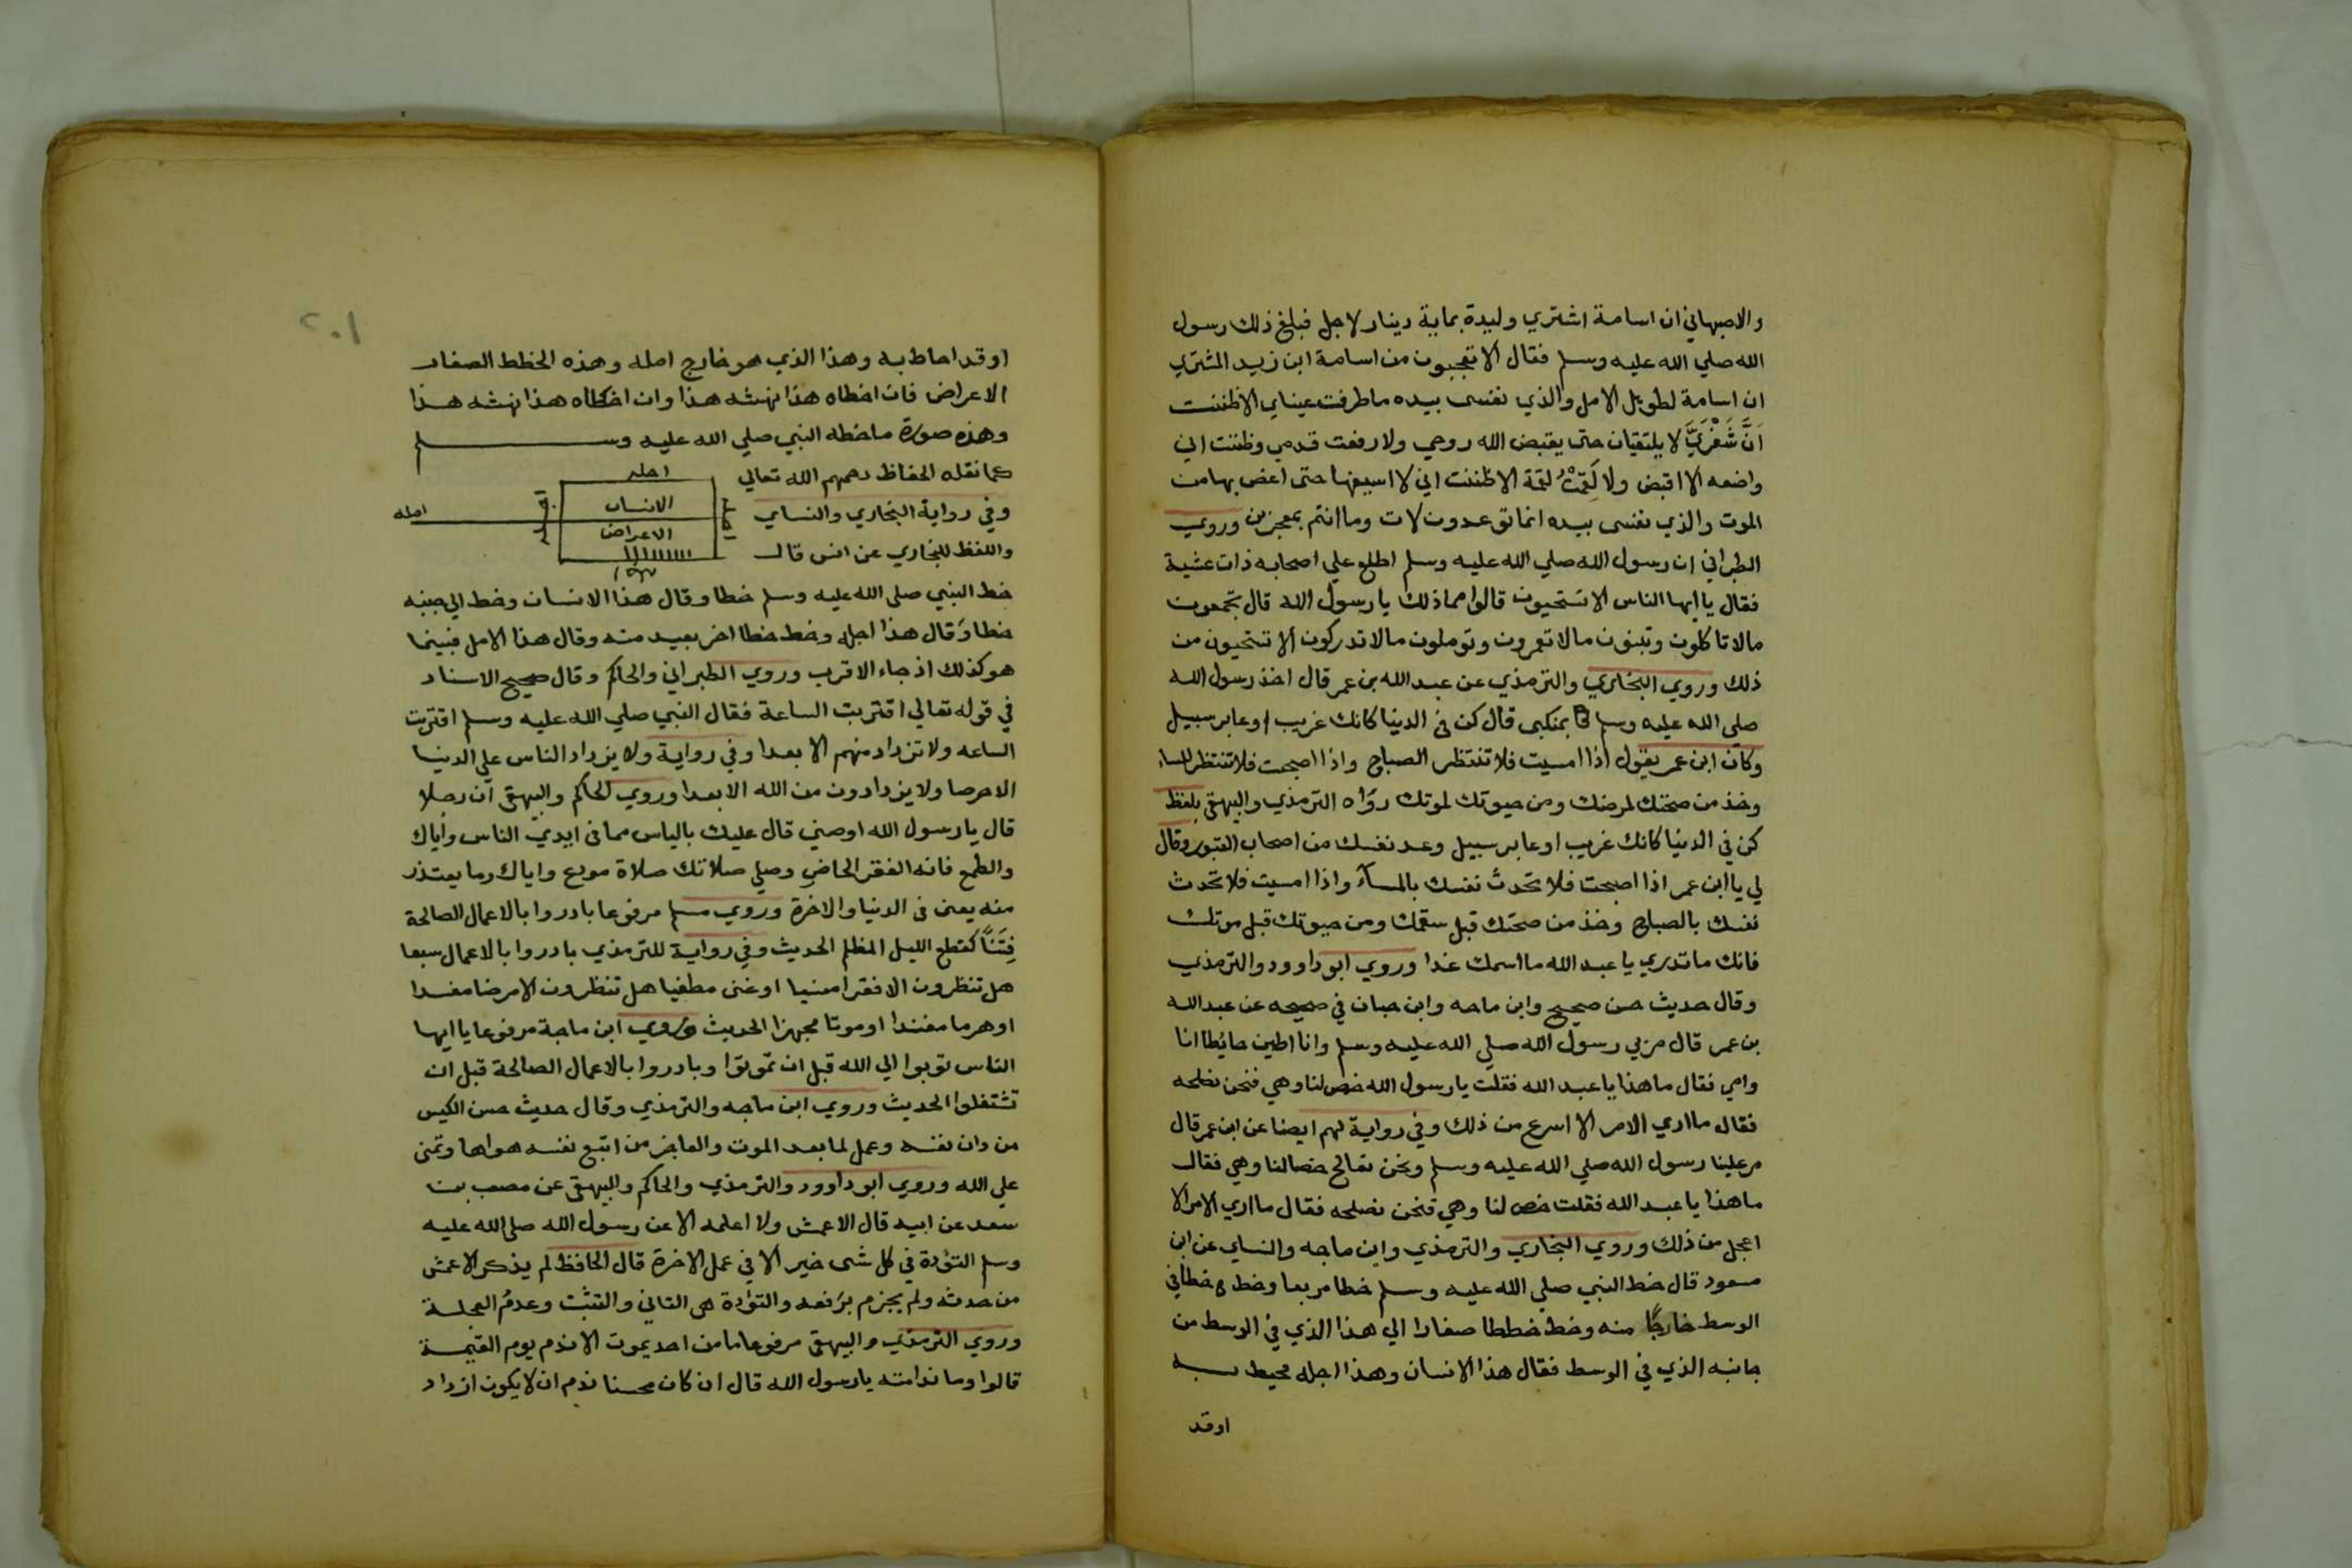 والاصبهاني ان اسامة اشتري وليدة بماية دينار لاجل فبلغ ذلك رسول
الله صلي الله عليه وسلم فقال الا تعجبون من اسامة ابن زيد المشتري
ان اسامة لطويل الامل والذي نفسى بيده ما طرفت عيناي الا ظننت
اَنَّ شَفْرَيَّ لا يلتقيان حتى يقبض الله روحي ولا رفعت قدمي وظننت اني
واضعه الا اقبض ولا لَقِمْتُ لقمة الا ظننت اني لا اسيغها حتى اغص بها من
الموت والذي نفسى بيده انما توعدون لات وما انتم بمعجزين وروي
الطبراني ان رسول الله صلي الله عليه وسلم اطلع علي اصحابه ذات عشية
فقال يا ايها الناس الا تستحيون قالوا مما ذلك يا رسول الله قال تجمعون
مالا تاكلون وتبنون مالا تعمرون وتوملون مالا تدركون الا تستحيون من
ذلك وروي البخاري والترمذي عن عبد الله بن عمر قال اخذ رسول الله
صلى الله عليه وسلم بمنكبى قال كن فى الدنيا كانك غريب او عابر سبيل
وكان ابن عمر يقول اذا امسيت فلا تنتظر الصباح واذا اصبحت فلا تنتظر المساء
وخذ من صحتك لمرضك ومن حيوتك لموتك رواه الترمذي والبيهقى بلفظ
كن في الدنيا كانك غريب او عابر سبيل وعد نفسك من اصحاب القبور وقال
لي يا ابن عمر اذا اصبحت فلا تحدث نفسك بالمسآء واذا امسيت فلا تحدث
نفسك بالصباح وخذ من صحتك قبل سقمك ومن حيوتك قبل موتك
فانك ما تدري يا عبد الله ما اسمك غدا وروي ابو داوود والترمذي
وقال حديث حسن صحيح وابن ماجه وابن حبان في صحيحه عن عبد الله
بن عمر قال مر بي رسول الله صلي الله عليه وسلم وانا اطين حائطا انا
وامي فقال ما هذا يا عبد الله فقلت يا رسول الله خص لنا وهي فنحن نصلحه
فقال ما اري الامر الا اسرع من ذلك وفي رواية لهم ايضا عن ابن عمر قال
مر علينا رسول الله صلي الله عليه وسلم ونحن نعالج خصا لنا وهي فقال
ما هذا يا عبد الله فقلت خص لنا وهي فنحن نصلحه فقال ما اري الامر الا
اعجل من ذلك وروي البخاري والترمذي وابن ماجه والنساي عن ابن
مسعود قال خط النبي صلي الله عليه وسلم خطا مربعا وخط خطا في
الوسط خارجًا منه وخط خططا صغارا الي هذا الذي في الوسط من
جانبه الذي في الوسط فقال هذا الانسان وهذا اجله محيط به
اوقد
١٠٢
اوقد احاط به وهذا الذي هو خارج امله وهذه الخطط الصغار
الاعراض فان اخطاه هذا نهشه هذا وان اخطاه هذا نهشه هذا
وهذه صورة ما خطه النبي صلي الله عليه وسلم
كما نقله الحفاظ رحمهم الله تعالي
وفي رواية البخاري والنساي
واللفظ للبخاري عن انس قال
اجله
الانسان
الاعراض
امله
خط النبي صلى الله عليه وسلم خطا وقال هذا الانسان وخط الي جنبه
خطا وَقال هذا اجله وخط خطا اخر بعيد منه وقال هذا الامل فبينما
هو كذلك اذ جاء الاقرب وروي الطبراني والحاكم وقال صحيح الاسناد
في قوله تعالي اقتربت الساعة فقال النبي صلي الله عليه وسلم اقتربت
الساعه ولا تزداد منهم الا بعدا وفي رواية ولا يزداد الناس علي الدنيا
الا حرصا ولا يزدادون من الله الا بعدا وروي الحاكم والبيهقى ان رجلا
قال يا رسول الله اوصني قال عليك بالياس مما فى ايدي الناس واياك
والطمع فانه الفقر الحاضر وصلي صلاتك صلاة مودع واياك وما يعتذر
منه يعنى فى الدنيا والاخرة وروي مسلم مرفوعا بادروا بالاعمال الصالحة
فِتَنًا كقطع الليل المظلم الحديث وفي رواية للترمذي بادروا بالاعمال سبعا
هل تنظرون الا فقرا منسيا او غنى مطغيا هل تنظرون الا مرضا مفسدا
او هرما مفندا او موتا مجهزا الحديث وروي ابن ماجة مرفوعا يا ايها
الناس توبوا الي الله قبل ان تموتوا وبادروا بالاعمال الصالحة قبل ان
تشتغلوا الحديث وروي ابن ماجه والترمذي وقال حديث حسن الكيس
من دان نفسه وعمل لما بعد الموت والعاجز من اتبع نفسه هواها وتمنى
علي الله وروي ابو داوود والترمذي والحاكم والبيهقى عن مصعب بن
سعد عن ابيه قال الاعمش ولا اعلمه الا عن رسول الله صلى الله عليه
وسلم التؤدة في كل شى خير الا في عمل الاخرة قال الحافظ لم يذكر الاعمش
من حدثه ولم يجزم برفعه والتؤدة هى التانى والتثبت وعدم العجلة
وروي الترمذي والبيهقى مرفوعا ما من احد يموت الا ندم يوم القيمة
قالوا وما ندامته يا رسول الله قال ان كان محسنا ندم ان لا يكون ازداد